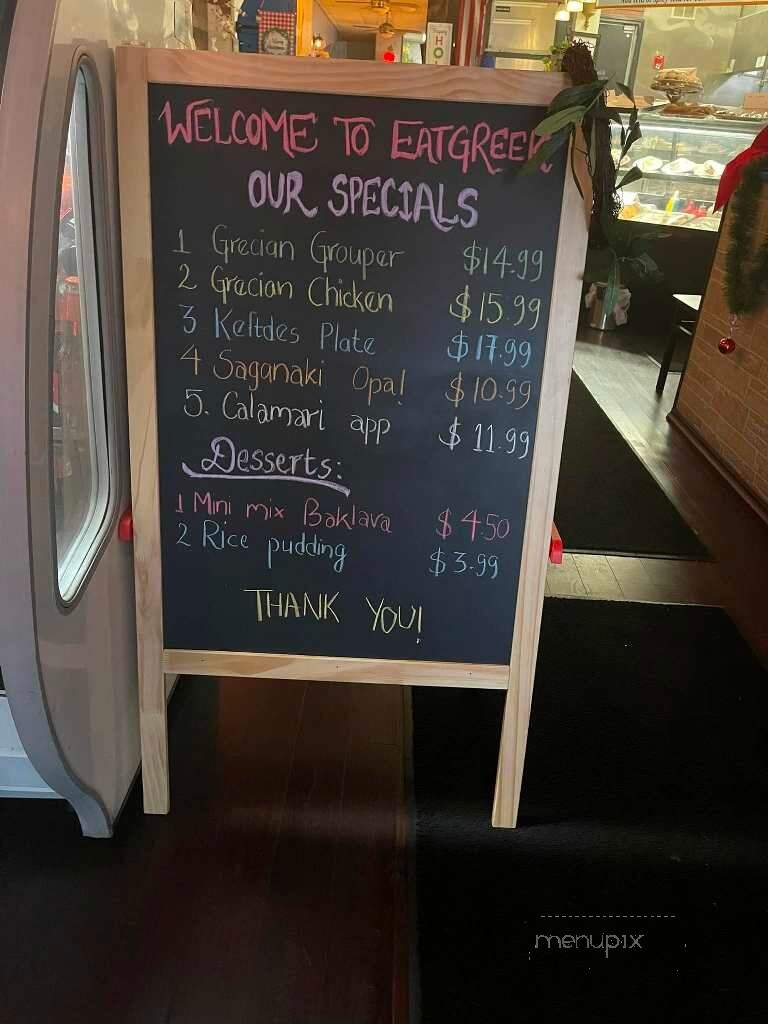 WELCOME TO EATGREEK
OUR SPECIALS
1 Grecian Grouper $14.99
2 Grecian Chicken $15.99
3 Keftdes Plate $17.99
4 Saganaki Opa! $10.99
5. Calamari app $11.99
Desserts:
1 Mini mix Baklava $4.50
2 Rice pudding $3.99
THANK YOU!
menupix